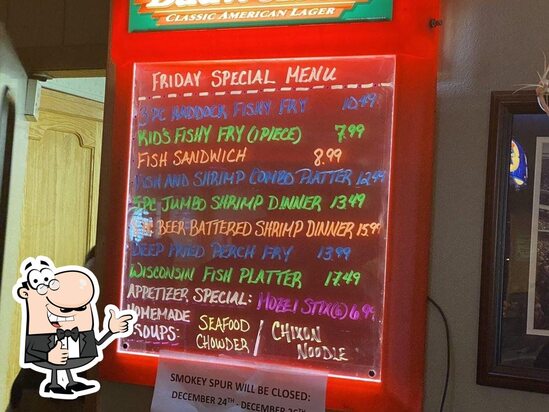 CLASSIC AMERICAN LAGER
FRIDAY SPECIAL MENU
3 PC HADDOCK FISHY FRY 10.49
KID'S FISHY FRY (1 PIECE) 7.99
FISH SANDWICH 8.99
FISH AND SHRIMP COMBO PLATTER 12.49
JUMBO SHRIMP DINNER 13.49
BEER BATTERED SHRIMP DINNER 15.99
DEEP FRIED PERCH FRY 13.99
WISCONSIN FISH PLATTER 17.49
APPETIZER SPECIAL: MOZZI STIX(6) 6.99
HOMEMADE SOUPS: SEAFOOD CHOWDER / CHIXON NOODLE
SMOKEY SPUR WILL BE CLOSED:
DECEMBER 24TH - DECEMBER